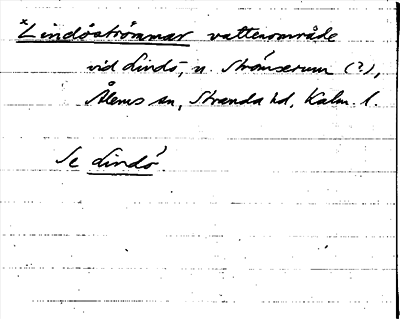 *Lindöströmmar vattenområde
vid Lindö, u. Strömserum (?),
Ålems sn, Stranda hd, Kalm. l.
Se Lindö.